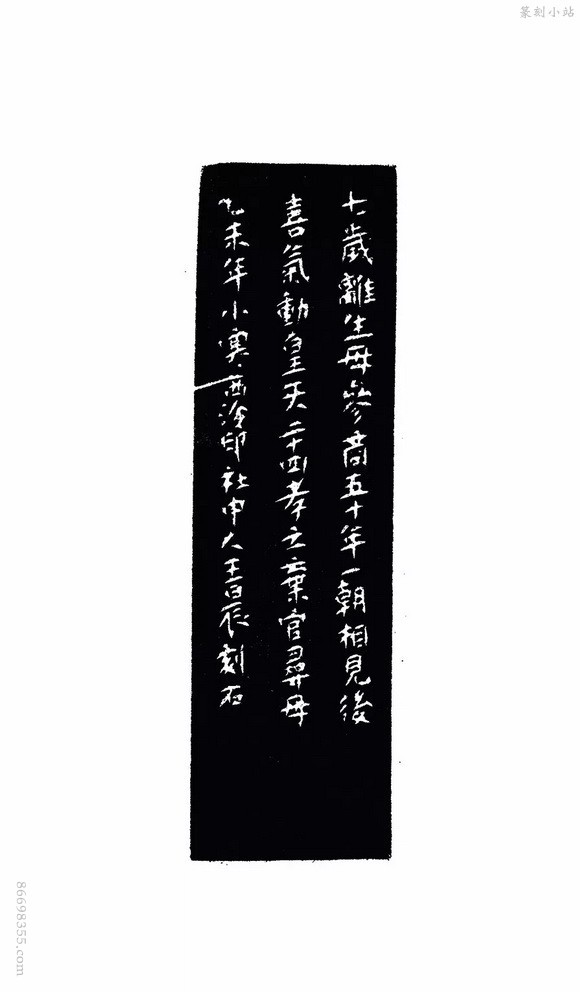 篆刻小站
七歲離生母參商五十年一朝相見後
喜氣動皇天二十四孝之棄官尋母
乙未年小寒西泠印社中人王臣辰刻石
86698355.com